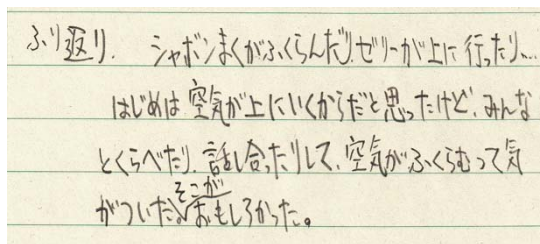 ふり返り. シャボンまくがふくらんだり、ゼリーが上に行ったり、…
はじめは空気が上にいくからだと思ったけど、みんな
とくらべたり、話し合ったりして、空気がふくらむって気
がついた。そこがおもしろかった。